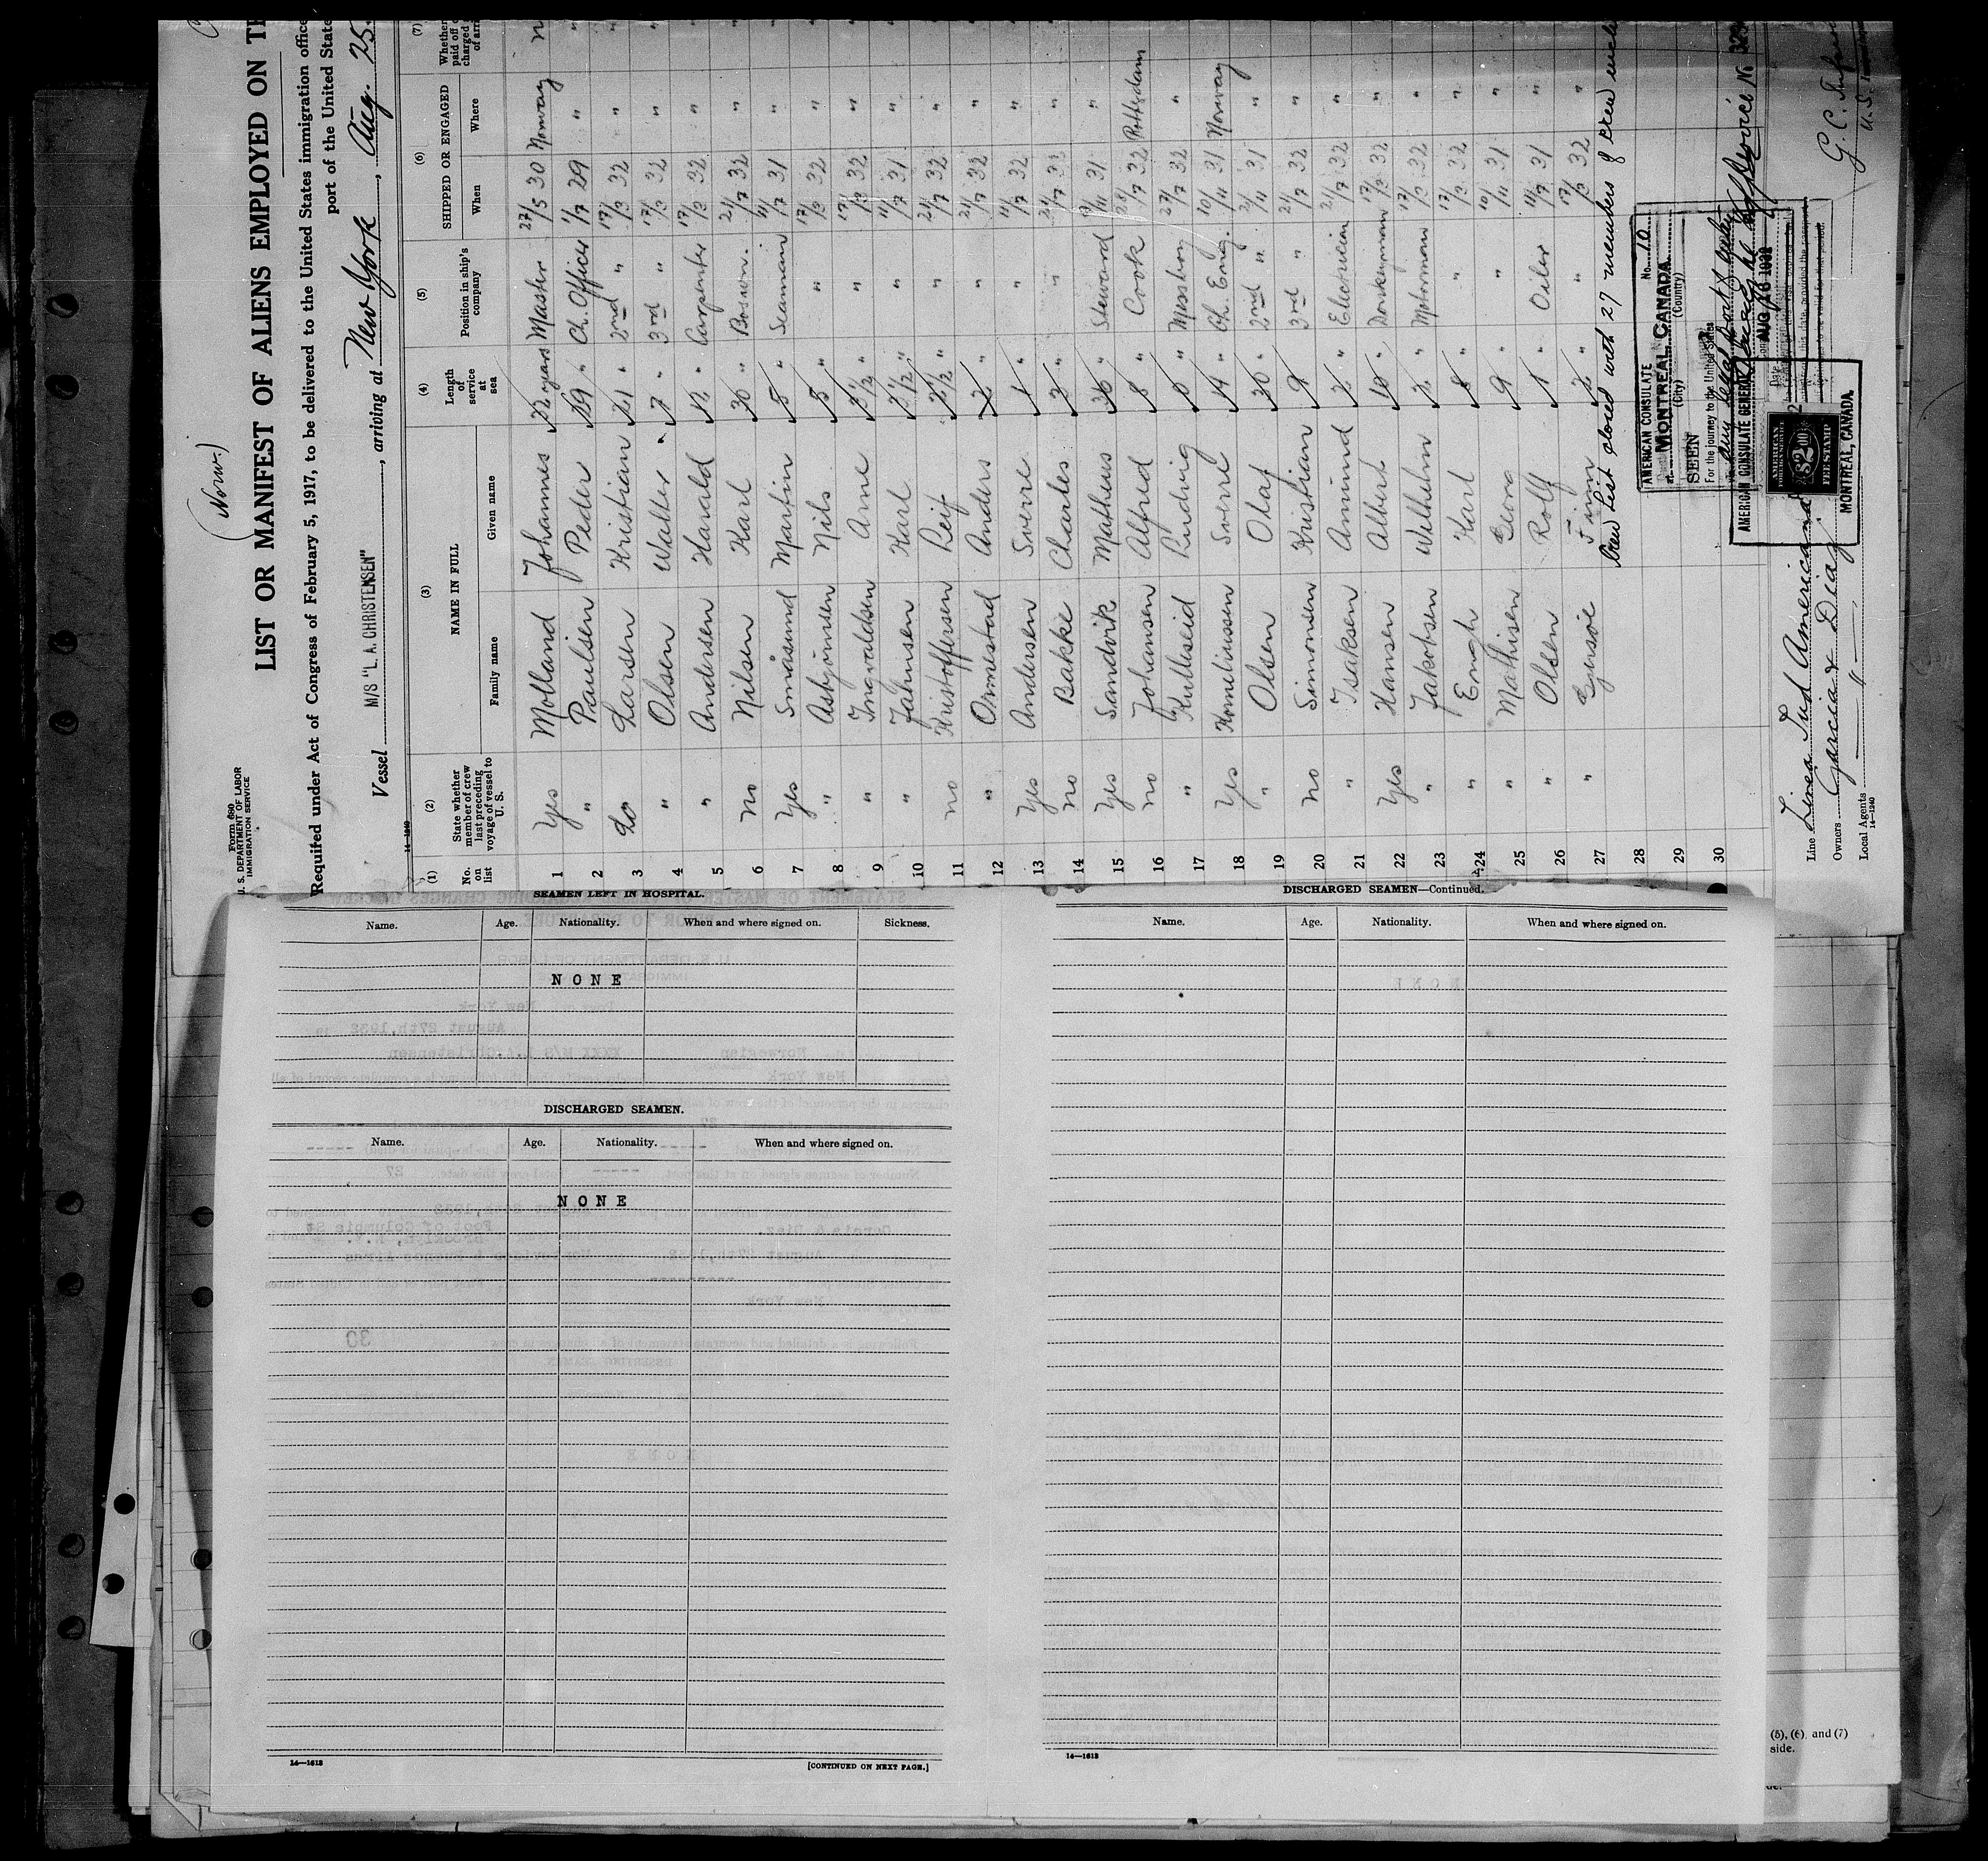 (Norw.)
Form 680
U. S. DEPARTMENT OF LABOR
IMMIGRATION SERVICE
LIST OR MANIFEST OF ALIENS EMPLOYED ON
Required under Act of Congress of February 5, 1917, to be delivered to the United States immigration
port of the United
Vessel M/S "L. A. CHRISTENSEN", arriving at New York, Aug. 25
14—1240
(1) (2) (3) (4) (5) (6) (7)
No. on list
State whether member of crew last preceding voyage of vessel to U. S.
NAME IN FULL
Family name
Given name
Length of service at sea
Position in ship's company
SHIPPED OR ENGAGED
When
Where
1 Yes Molland Johannes 22 years Master 27/5 30 Norway
2 " Paulsen Peder 29 " Ch. Officer 1/7 29 "
3 Do Larsen Kristian 21 " 2nd " 17/3 32 "
4 " Olsen Walter 7 " 3rd " 17/3 32 "
5 " Andersen Harald 12 " Carpenter 17/3 32 "
6 No Nilsen Karl 30 " Boswn. 21/7 32 "
7 Yes Småsund Martin 5 " Seaman 11/7 31 "
8 " Asbjørnsen Nils 5 " " 17/3 32 "
9 " Ingvaldsen Arne 3 1/2 " " 17/3 32 "
10 " Jahnsen Karl 2 1/2 " " 11/7 31 "
11 no Kristoffersen Leif 2 1/2 " " 21/7 32 "
12 " Ormestad Anders 2 " " 21/7 32 "
13 Yes Andersen Sverre 1 " " 32 "
14 no Bakke Charles 3 " " 21/7 32 "
15 Yes Sandvik Mathæus 36 " Steward 31 "
16 no Johansen Alfred 8 " Cook 32 Pottsdam
17 " Kulleseid Ludvig 0 " Messboy 27/7 32 "
18 Yes Korneliussen Sverre 14 " Ch. Eng. 10/11 31 Norway
19 " Olsen Olaf 30 " 2nd " 31 "
20 no Simonsen Kristian 9 " 3rd " 21/7 32 "
21 " Isaksen Amund 2 " Electrician 21/7 32 "
22 Yes Hansen Albert 10 " Donkeyman 17/3 32 "
23 " Jakobsen Wilhelm 2 " Motorman 17/3 32 "
24 " Engh Karl 8 " " 17/3 32 "
25 " Mathisen Georg 9 " " 10/11 31 "
26 " Olsen Rolf 1 " Oiler 11/7 31 "
27 " Finn 2 " " 17/3 32 "
28
29
30
Crew List closed with 27 members of crew
AMERICAN CONSULATE
No. 10
at MONTREAL, CANADA
(City) (Country)
SEEN
For the journey to the United States
AMERICAN CONSULATE GENERAL
AUG 1932
AMERICAN
FOREIGN SERVICE
$2.00
FEE STAMP
MONTREAL, CANADA
Line Linea Sud Americana
Owners Garcia & Diaz
Local Agents — " —
14—1240
SEAMEN LEFT IN HOSPITAL.
Name. Age. Nationality. When and where signed on. Sickness.
NONE
DISCHARGED SEAMEN.
Name. Age. Nationality. When and where signed on.
NONE
14—1613
[CONTINUED ON NEXT PAGE.]
DISCHARGED SEAMEN—Continued.
Name. Age. Nationality. When and where signed on.
14—1613
(5), (6), and (7)
side.